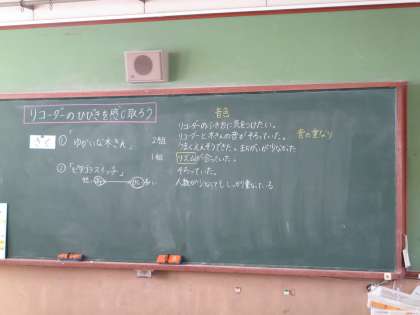 リコーダーのひびきを感じ取ろう
① 「ゆかいな木きん」 2組
1組
② 「ピタゴラスイッチ」
音色
リコーダーのふき方に気をつけたい。
リコーダーと木きんの音がそろっていた。
音の重なり
リズムが合っていた。
そろっていた。
人数が少なくてもしっかり重なっている